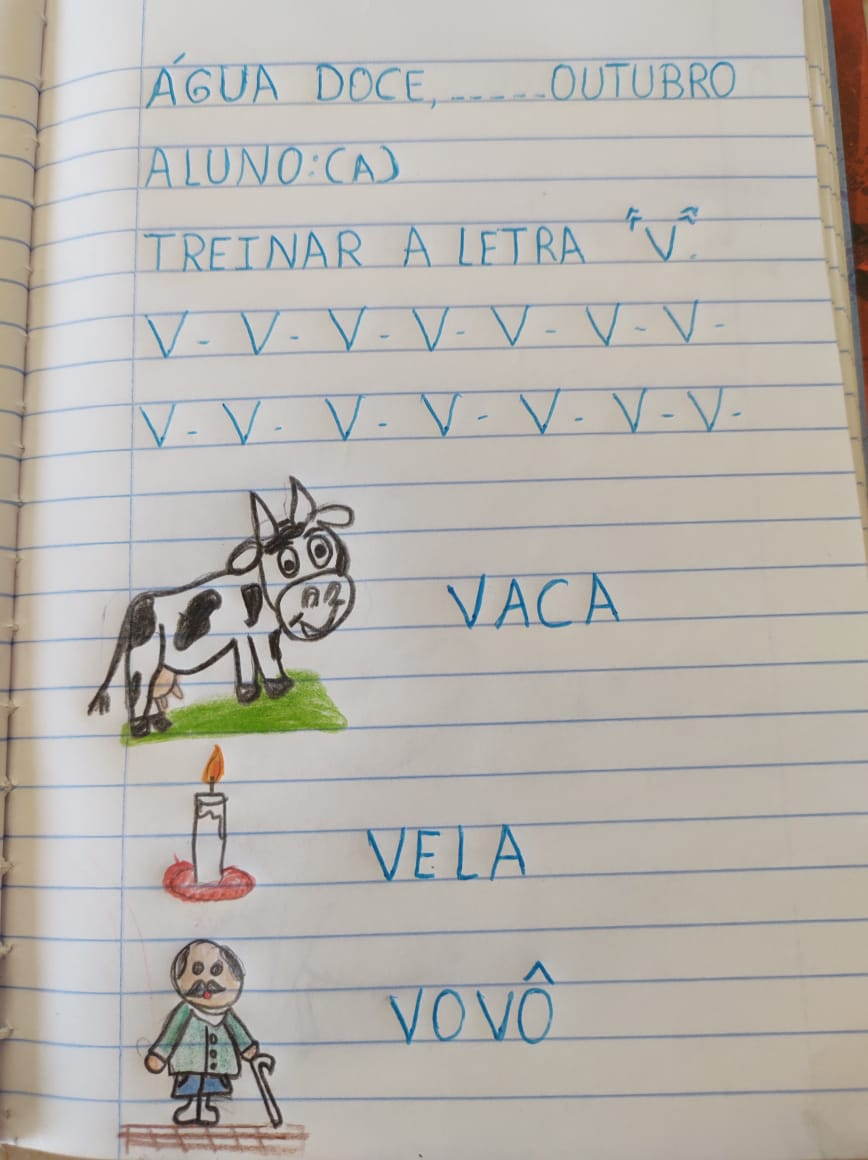 ÁGUA DOCE,_____OUTUBRO
ALUNO:(A)
TREINAR A LETRA "V".
V- V- V- V- V- V- V-
V- V- V- V- V- V- V-
VACA
VELA
VOVÔ